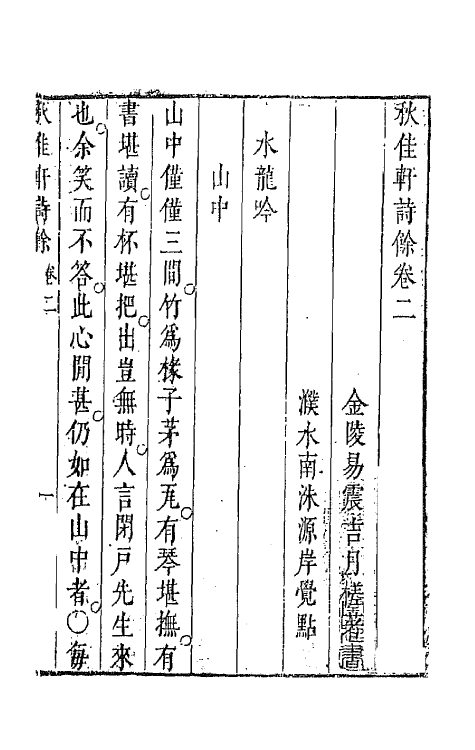 秋佳軒詩餘卷二
金陵易震吉月槎著
濮水南洙源岸覺點
水龍吟
山中
山中僅僅三間竹爲椽子茅爲瓦有琴堪撫有
書堪讀有杯堪把出豈無時人言閉戸先生來
也余笑而不答此心閒甚仍如在山中者〇每
秋佳軒詩餘 卷二 一